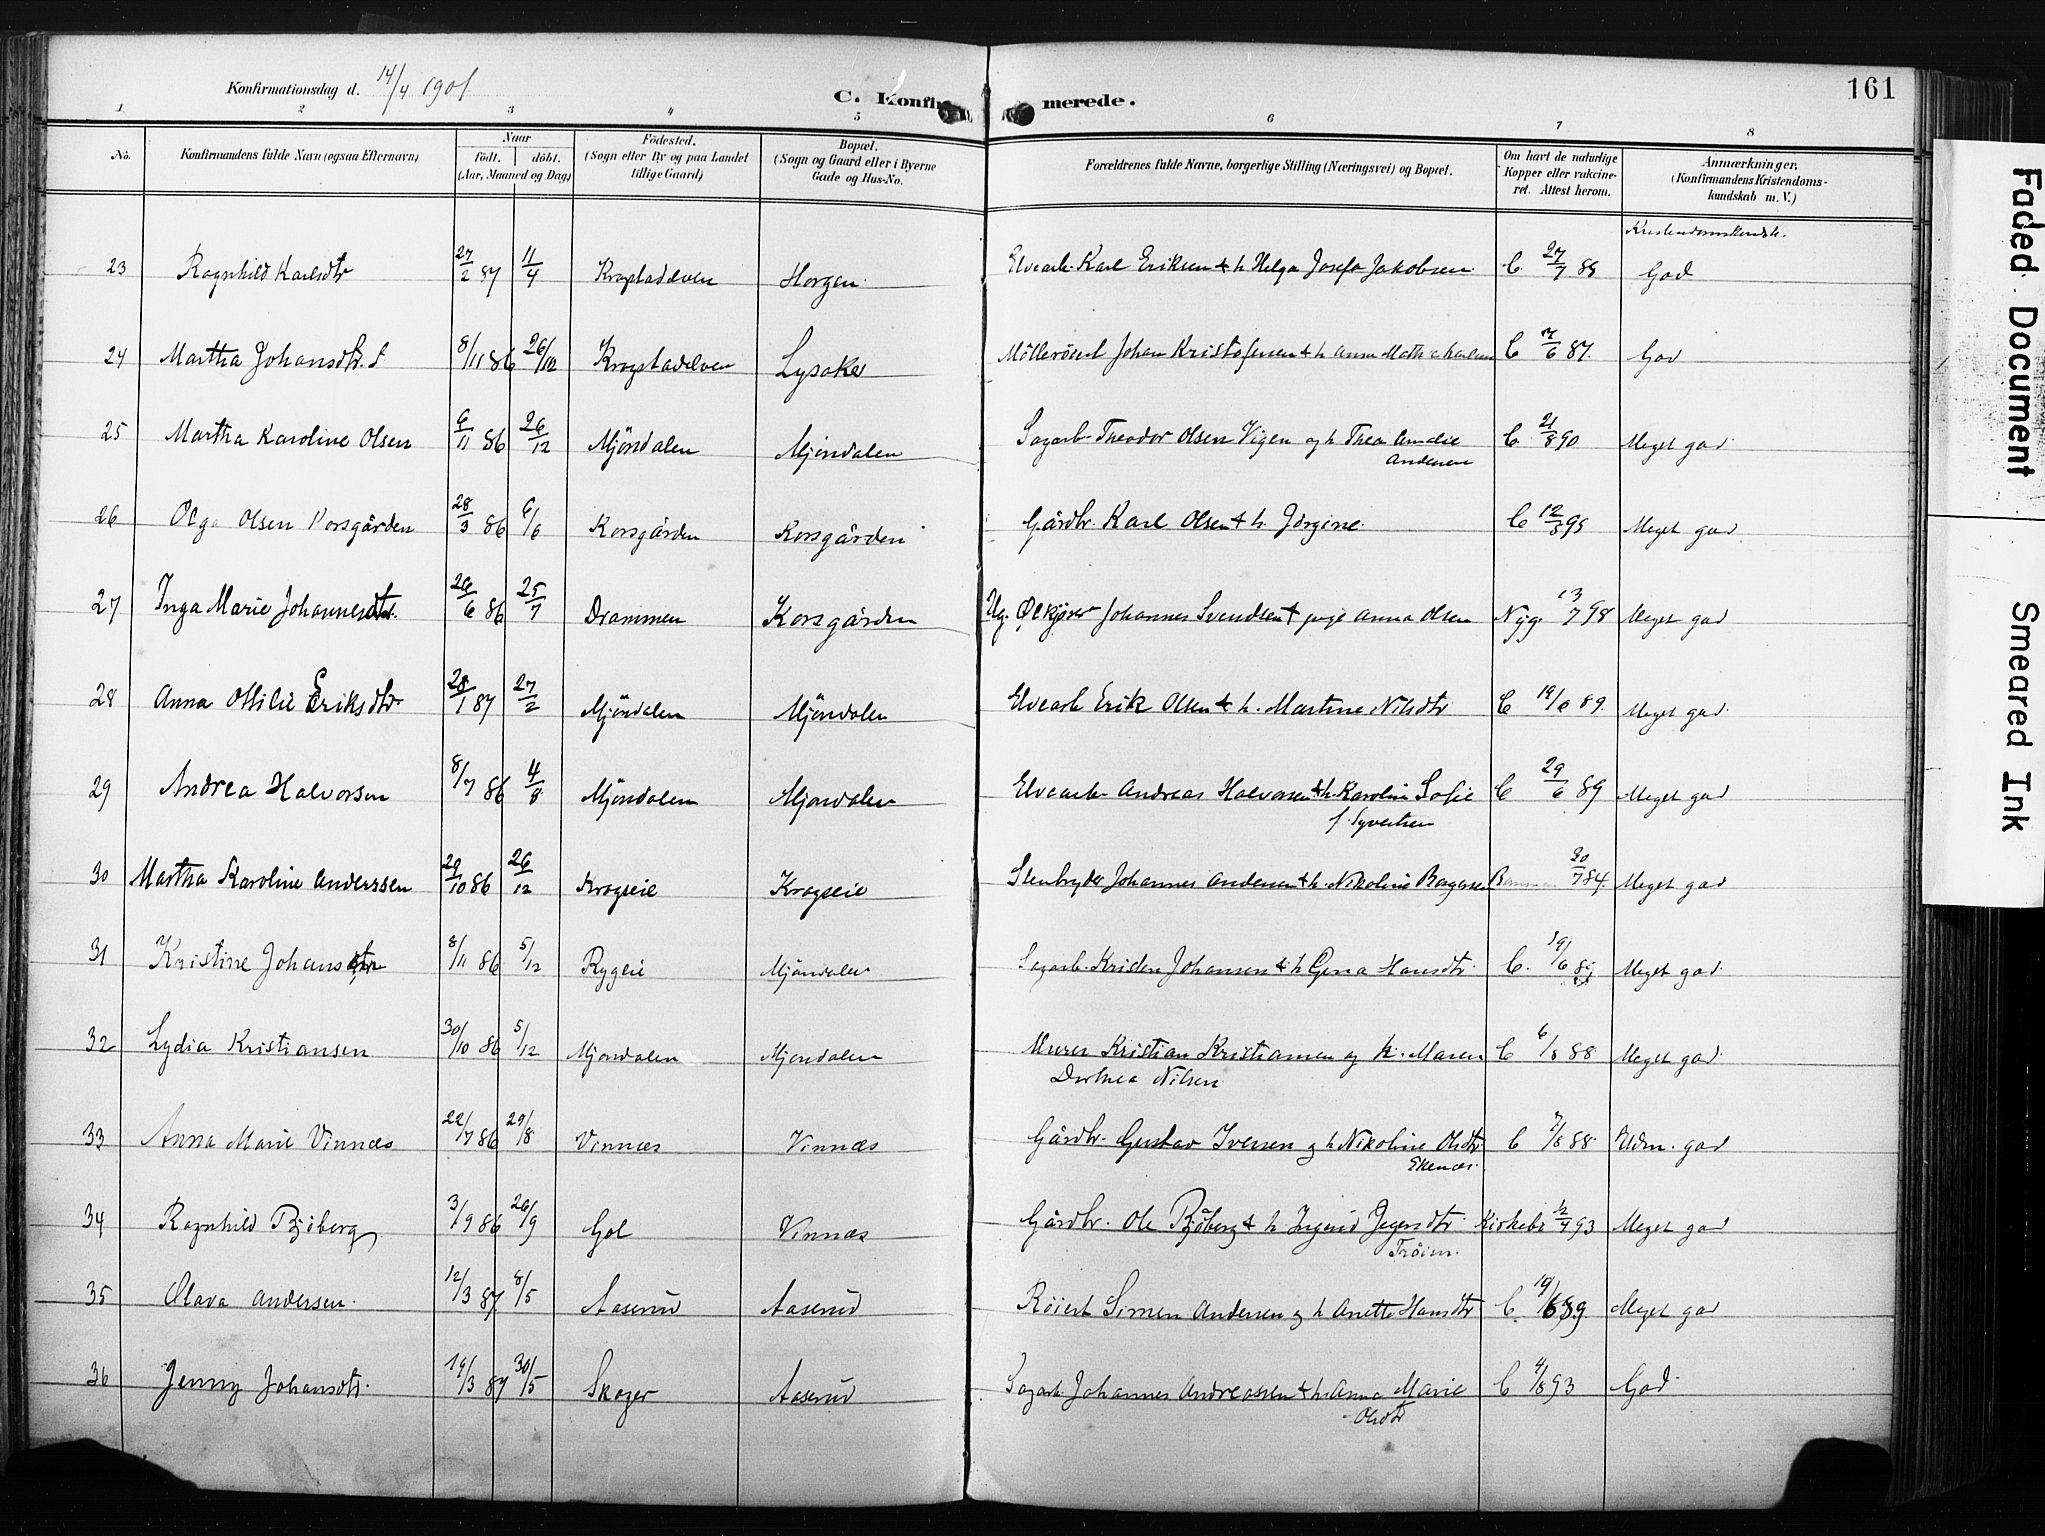 Konfirmationsdag d. 14/4 1901
C. Konfirmerede.
161
1 2 3 4 5 6 7 8
No. Konfirmandens fulde Navn (ogsaa Efternavn) Naar födt. döbt. (Aar, Maaned og Dag) Födested. (Sogn eller By og paa Landet tillige Gaard) Bopæl. (Sogn og Gaard eller i Byerne Gade og Hus-No. Forældrenes fulde Navne, borgerlige Stilling (Næringsvei) og Bopæl. Om havt de naturlige Kopper eller vakcineret. Attest herom. Anmærkninger, (Konfirmandens Kristendomskundskab m. V.)
23 Ragnhild Karlsdtr 27/2 87 11/4 Krogstadelven Horgen Elvearb. Karl Eriksen & h Helga Josefa Jakobsen C. 27/7 88 God
24 Martha Johansdtr. 8/11 86 26/12 Krogstadelven Lysaker Johan Kristofersen & h. Anna C 7/6 87. God
25 Martha Karoline Olsen 6/11 86 26/12 Mjöndalen Mjöndalen Sagarb. Theodor Olsen Vigen og h. Thea Amalie C. 21/8 90 Meget god
Andersen
26 Olga Olsen Korsgården 28/3 86 6/6 Korsgården Korsgården Gårdbr. Karl Olsen & h. Jörgine. C 12/8 95 Meget god
27 Inga Marie Johannesdtr. 26/6 86 25/7 Drammen Korsgården Ug. Ølkjörer Johannes Svendsen & pige Anna Olsen Nyg. 13/7 98 Meget god
28 Anna Ottilie Eriksdtr 28/1 87 27/2 Mjöndalen Mjöndalen Elvearb Erik Olsen & h. Martine Nilsdtr C 19/6 89. Meget god.
29 Andrea Halvorsen 8/7 86 4/8 Mjöndalen Mjöndalen Elvearb. Andreas Halvorsen & h. Karoline Sofie C 29/6 89 Meget god
f. Syvertsen
30 Martha Karoline Anderssen 29/10 86 26/12 Krogseie Krogseie Stenbryder Johannes Andersen & h. Nikoline Borgersen 30/7 84. Meget god
31 Kristine Johansdtr 8/11 86 5/12 Rygeie Mjöndalen Sagarb. Kristen Johansen & h Gena Hansdtr. C. 19/6 89 Meget god.
32 Lydia Kristiansen 30/10 86 5/12 Mjöndalen Mjöndalen Murer Kristian Kristiansen og h. Maren C 6/8 88 Meget god.
Dorthea Nilsen
33 Anna Marie Vinnæs 22/7 86 29/8 Vinnæs Vinnæs Gårdbr. Gustav Iversen og h Nikoline Olsdtr C 7/8 88 Udm. god
Ekenæs.
34 Ragnhild Bjöberg 3/9 86 26/9 Gol Vinnæs Gårdbr. Ole Bjöberg & h. Ingerid Kirkebr. 93 Meget god
Tröim.
35 Olava Andersen. 12/3 87 8/5 Aaserud Aaserud Röiert Simen Andersen og h Anette Hansdtr C. 19/6 89 Meget god
36 Jenny Johansdtr. 19/3 87 30/5 Skoger Aaserud Sagarb. Johannes Andreassen & h. Anna Marie C 4/8 93 God
Olsdtr
Faded Document
Smeared Ink